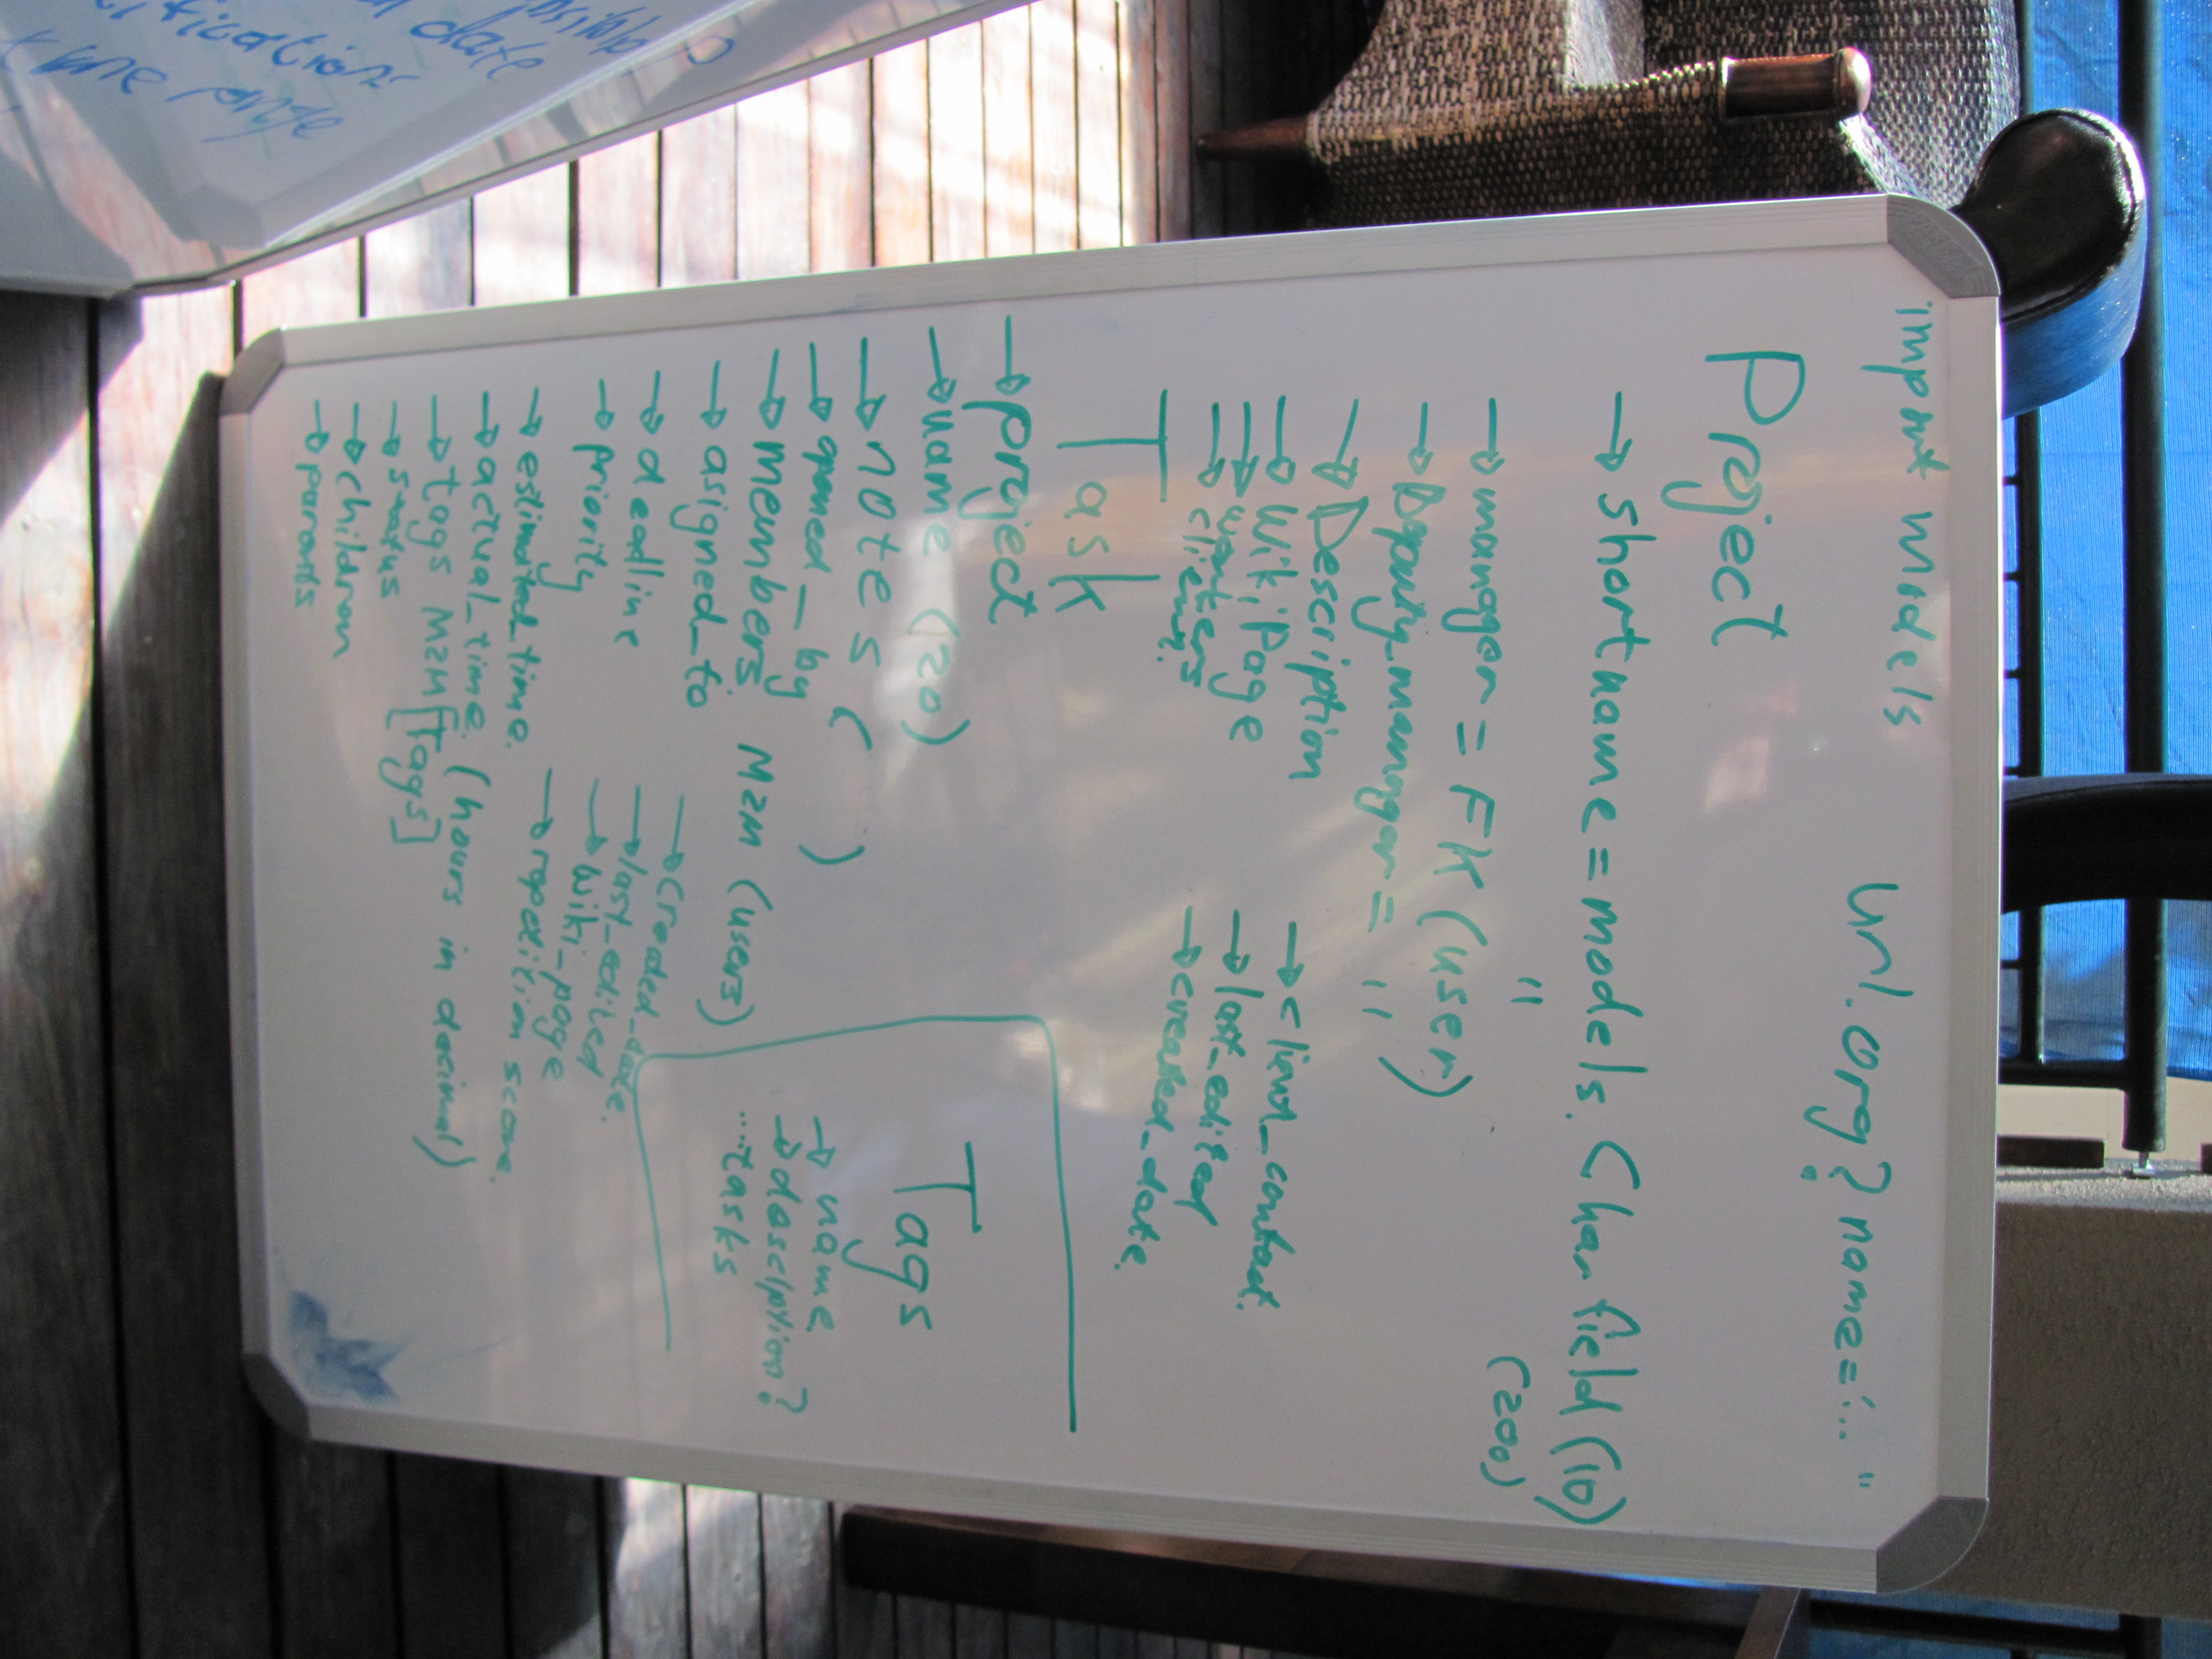 import models
url.org? name='..."
Project
→ shortname = models. Charfield (10)
" (200)
→ manager = FK (user)
→ Deputy_manager = "
→ Description
→ WikiPage
→ workers
→ client.
→ client_contact.
→ last_edited
→ created_date.
Task
→ project
→ name (20)
→ notes ( )
→ opened_by
→ members. M2M (users)
→ asigned_to
→ deadline
→ priority
→ estimated_time.
→ actual_time. (hours in decimal)
→ tags M2M [Tags]
→ status
→ children
→ parents
→ created_date.
→ last_edited
→ wiki_page
→ repetition score.
Tags
→ name
→ desciption?
....tasks
date
one page